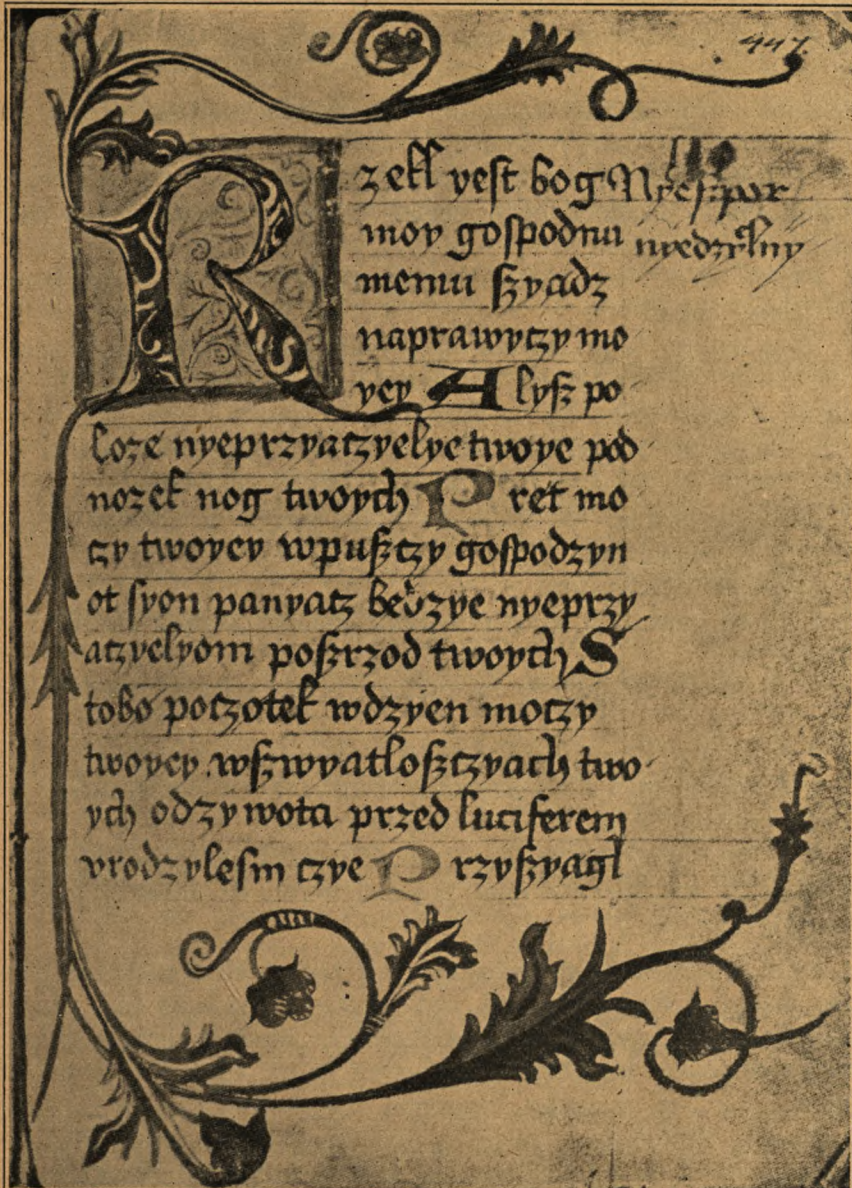 447
Rzekl yest bog
moy gospodnu
memu ſzyadz
naprawyczy mo
yey Alyſz po
loze nyeprzyaczyelye twoye pod
nozek nog twoych Pret mo
czy twoyey wpuſzczy goſpodzyn
ot ſyon panyacz bedzye nyeprzy
aczyelyom poſzrzod twoych S
tobo poczotek wdzyen moczy
twoyey wſzwyatloſzczyach two
ych odzywota przed luciferem
vrodzyleſm czye Przyſzyagl
Nyeſzpor
nyedzyelny